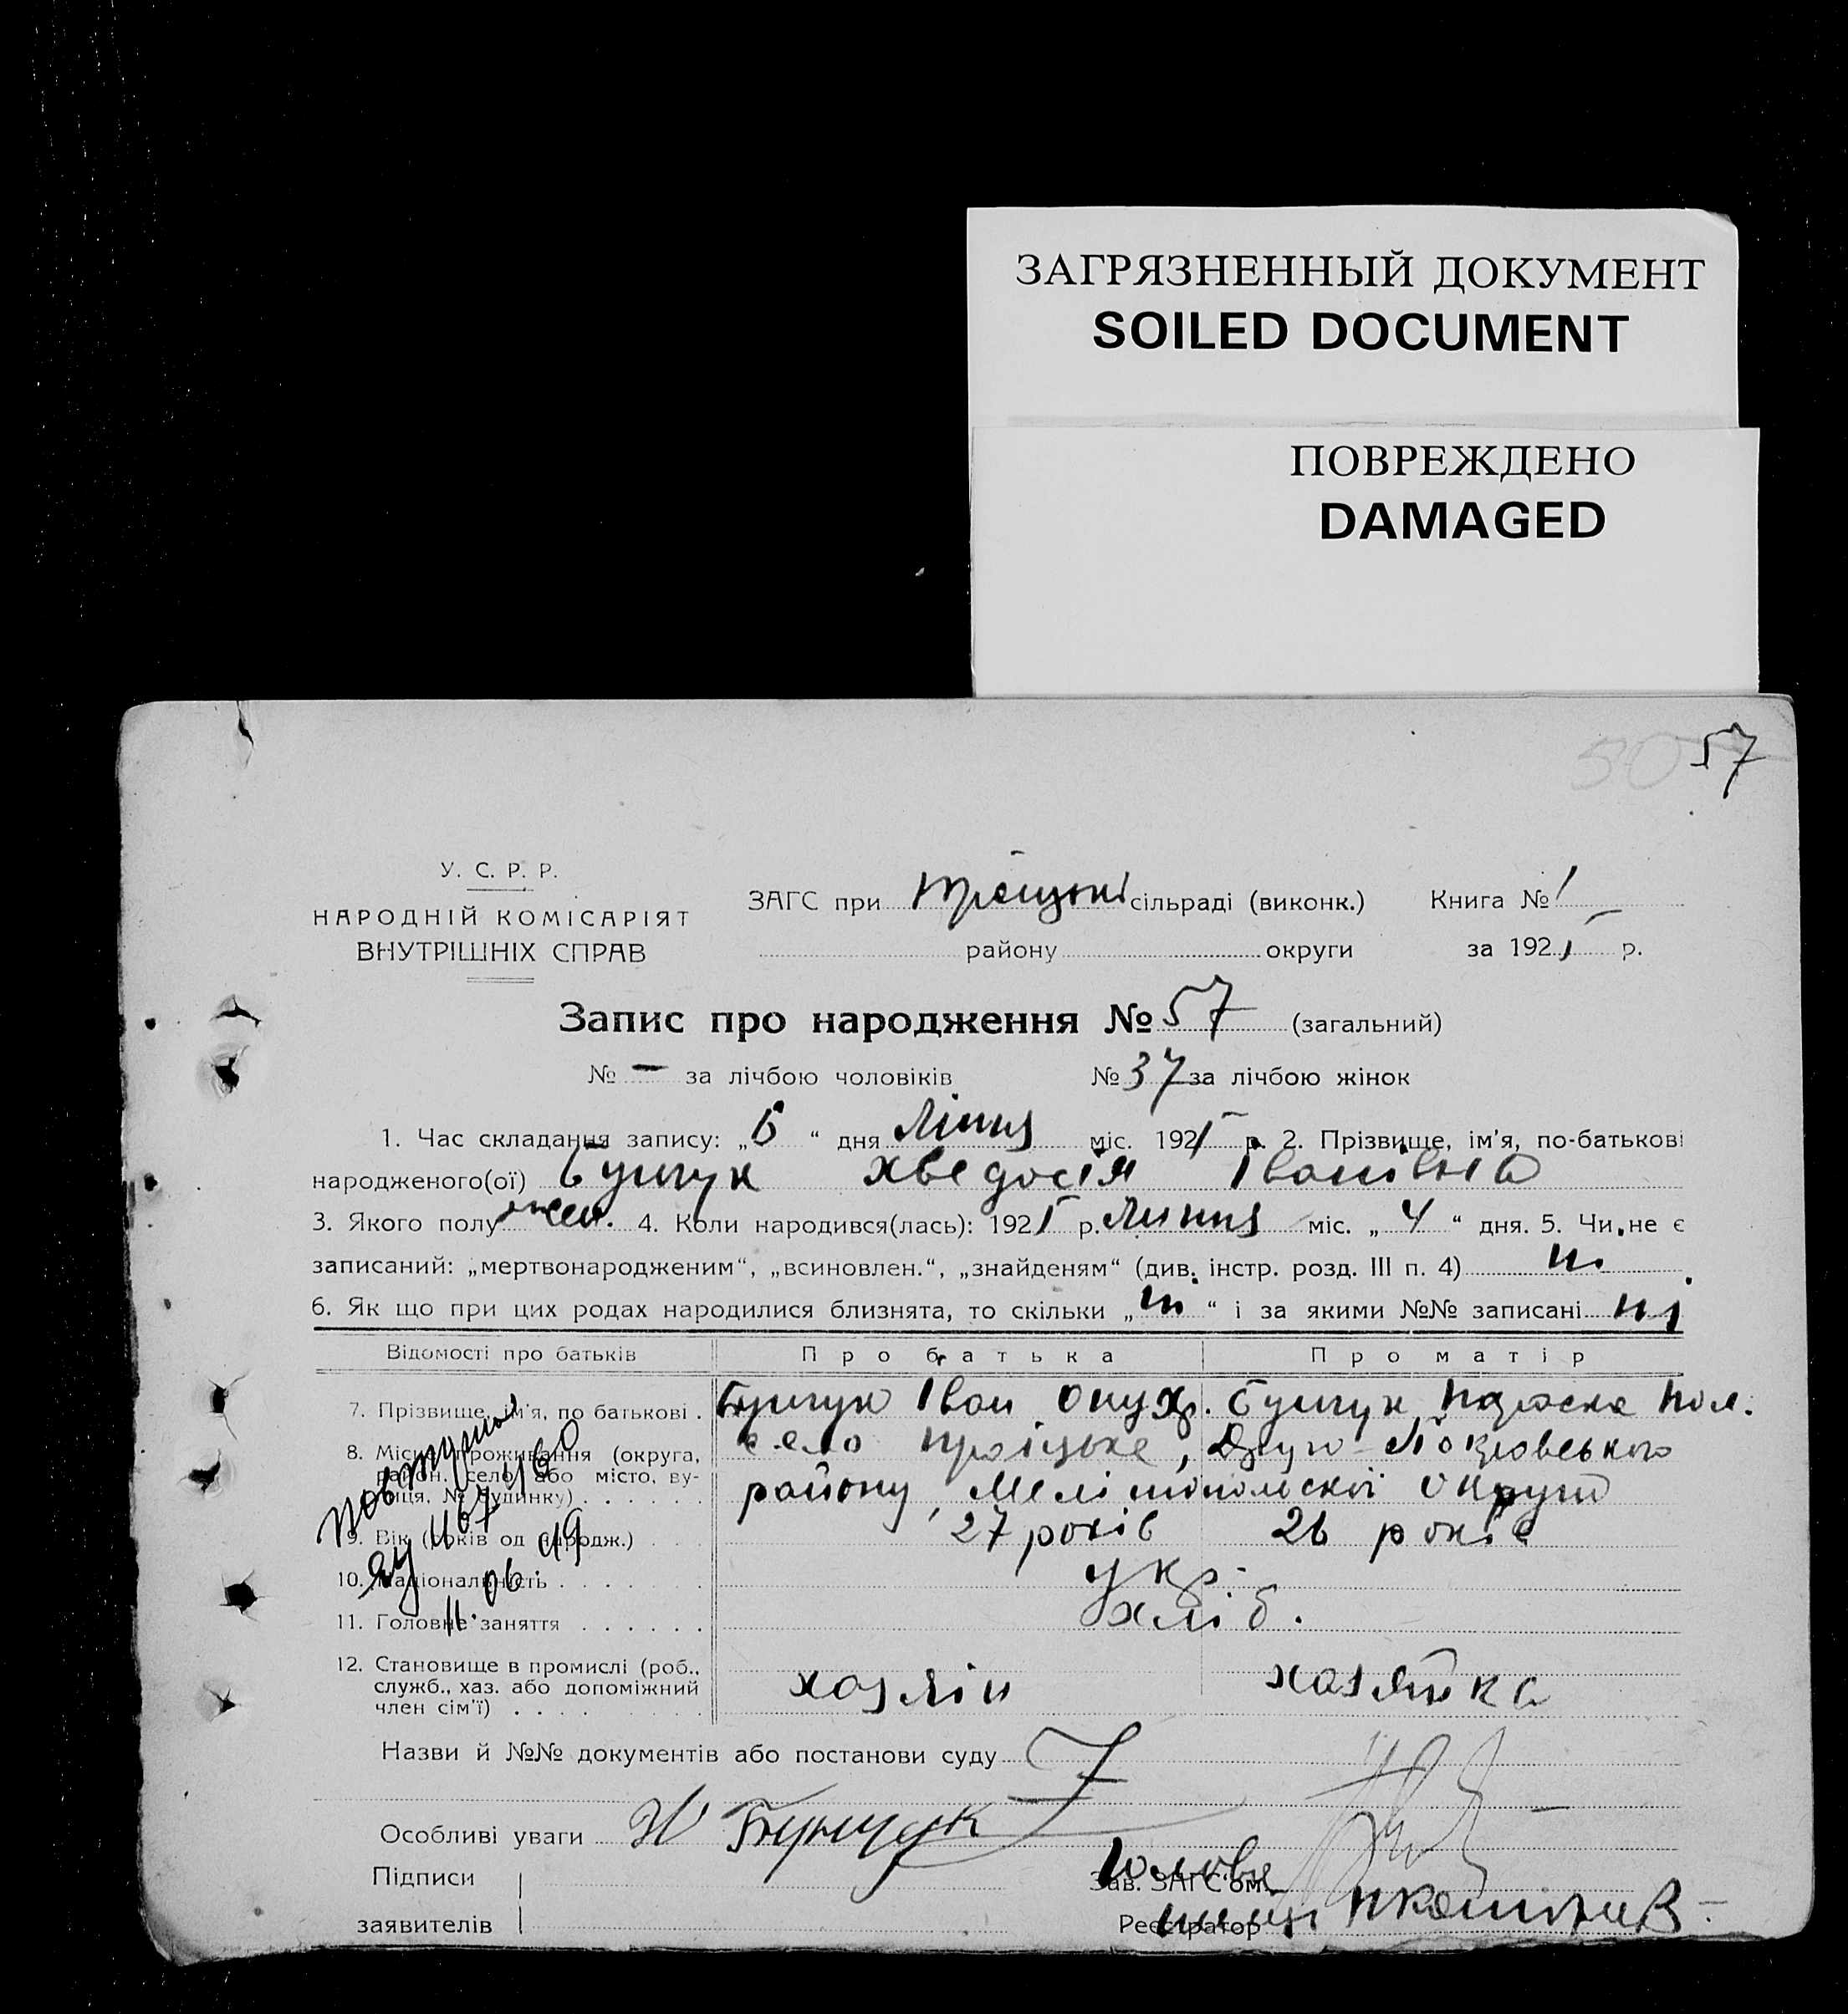 ЗАГРЯЗНЕННЫЙ ДОКУМЕНТ
SOILED DOCUMENT
ПОВРЕЖДЕНО
DAMAGED
50 57
У. С. Р. Р.
НАРОДНІЙ КОМІСАРІЯТ
ВНУТРІШНІХ СПРАВ
ЗАГС при сільраді (виконк.) Книга № 1
району округи за 1925 р.
Запис про народження № 57 (загальний)
№ — за лічбою чоловіків № 37 за лічбою жінок
1. Час складання запису: „6“ дня Липня міс. 1925 р. 2. Прізвище, ім'я, по-батькові
народженого(ої) Бунчук Хведосія Іванівна
3. Якого полу жен. 4. Коли народився(лась): 1925 р. Липня міс. „4“ дня. 5. Чи не є
записаний: „мертвонародженим“, „всиновлен.“, „знайденям“ (див. інстр. розд. III п. 4) ні
6. Як що при цих родах народилися близнята, то скільки „ні“ і за якими №№ записані ні
Відомості про батьків Про батька Про матір
7. Прізвище, ім'я, по батькові . Бунчук Іван Онухр. Бунчук Параска
8. Місце проживання (округа, район, село або місто, вулиця, № будинку) село Троіцьке, Друго-Покровського
району, Мелітопольскої Округи
9. Вік (років од народж.) 27 років 26 років
10. Національність укр.
11. Головне заняття хліб.
12. Становище в промислі (роб., хазяін хазяйка
служб., хаз. або допоміжний
член сім'ї)
Повторна
ЯУ 467460
11.06.
Назви й №№ документів або постанови суду
Особливі уваги Бунчук
Підписи Зав. ЗАГС'ом Голова
заявителів Реєстратор